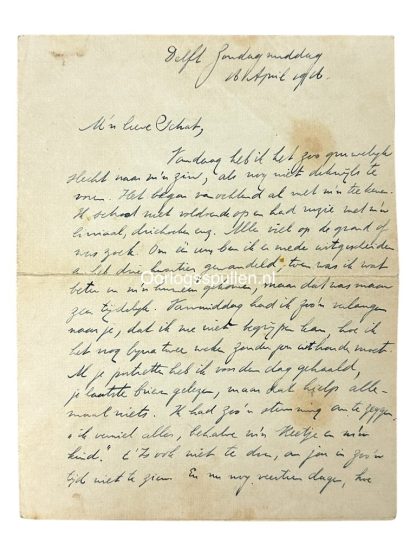 Delft Zondagmiddag
16 April 1916.
M'n lieve Schat,
Vandaag heb ik het zoo gruwelijk
slecht naar m'n zin, als nog niet
voren. Het began vanochtend al met m'n
Ik schoot niet voldoende op en had ruzie met m'n
liniaal, driehoek enz. Alles viel op de grond of
was zoek. Om één uur ben ik er mede uitgescheiden
en heb drie kwartier gewandeld, toen was ik wat
beter in m'n humeur gekomen, maar dat was maar
zeer tijdelijk. Vanmiddag had ik zoo'n verlangen
naar je, dat ik me niet begrijpen kan, hoe ik
het nog bijna twee weken zonder jou uithouden moet.
Al je portretten heb ik vandaag gehaald,
je laatste brieven gelezen, maar dat hielp alle-
maal niets. Ik had zoo'n stemming om te zeggen
"ik verniel alles, behalve m'n Heetje en m'n
kind." 't Is ook niet te doen, om jou in zoo'n
tijd niet te zien. En nu nog veertien dagen, hoe
Oorlogsspullen.nl